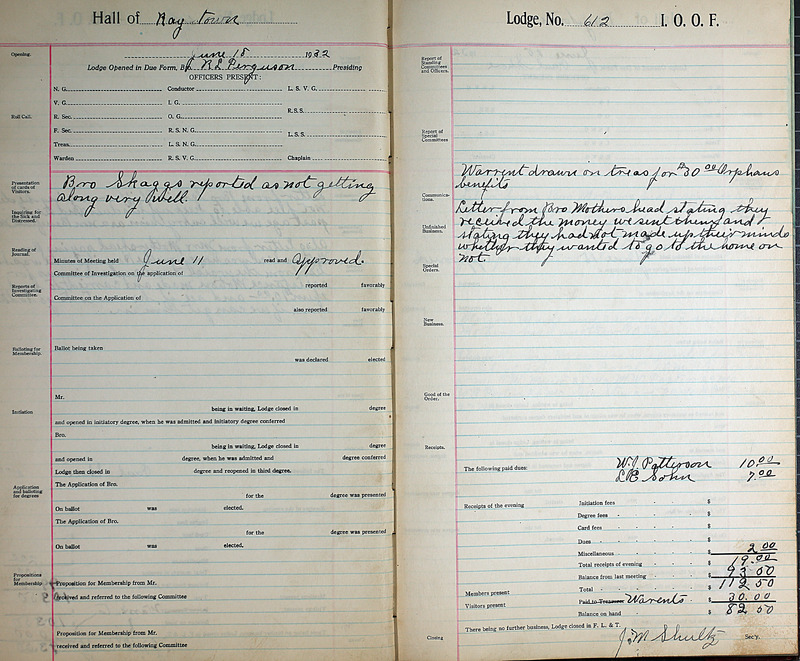 Hall of Ray Town
Opening.
June 18 1932
Lodge Opened in Due Form, By N L Ferguson Presiding
OFFICERS PRESENT:
Roll Call.
N. G. Conductor L. S. V. G.
V. G. I. G.
R. Sec. O. G. R.S.S.
F. Sec. R. S. N. G.
Treas. L. S. N. G. L.S.S.
Warden R. S. V. G. Chaplain
Presentation of cards of Visitors.
Bro Skaggs reported as not getting
along very well.
Inquiring for the Sick and Distressed.
Reading of Journal.
Minutes of Meeting held June 11 read and approved.
Committee of Investigation on the application of
reported favorably
Reports of Investigating Committee.
Committee on the Application of
also reported favorably
Balloting for Membership.
Ballot being taken
was declared elected
Mr.
Initiation
being in waiting, Lodge closed in degree
and opened in initiatory degree, when he was admitted and initiatory degree conferred
Bro.
being in waiting, Lodge closed in degree
and opened in degree, when he was admitted and degree conferred
Lodge then closed in degree and reopened in third degree.
Application and balloting for degrees
The Application of Bro.
for the degree was presented
On ballot was elected.
The Application of Bro.
for the degree was presented
On ballot was elected.
Propositions for Membership
Proposition for Membership from Mr.
received and referred to the following Committee
Proposition for Membership from Mr.
received and referred to the following Committee
Lodge, No. 612 I. O. O. F.
Report of Standing Committees and Officers.
Report of Special Committees
Warrent drawn on treas for $30 00 Orphans
benefits
Communications.
Letter from Bro Mothershead stating they
received the money we sent them and
Unfinished Business.
stating they had not made up their minds
whether they wanted to go to the home or
not.
Special Orders.
New Business.
Good of the Order.
Receipts.
The following paid dues: W. J. Patterson 10.00
L E Sohn 7.00
Receipts of the evening Initiation fees $
Degree fees $
Card fees $
Dues $
Miscellaneous $ 2.00
Total receipts of evening $ 19.00
Balance from last meeting $ 93 50
Members present Total $ 112 50
Visitors present Paid to Treasurer Warents $ 30.00
Balance on hand $ 82 50
There being no further business, Lodge closed in F. L. & T.
Closing J. M Shultz Sec'y.